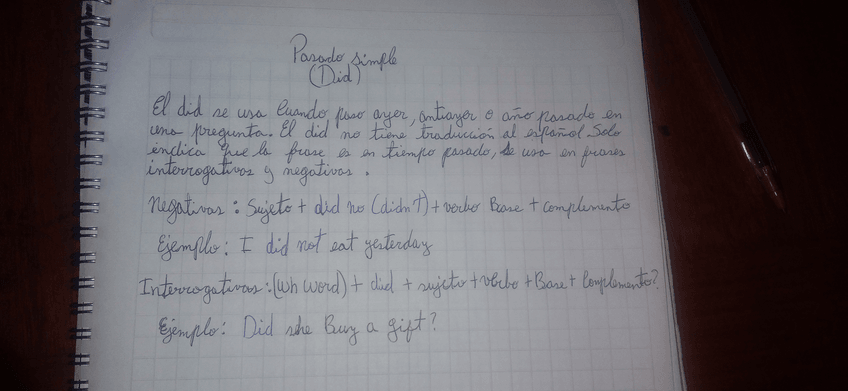 Pasado simple
(Did)
El did se usa Cuando paso ayer, antiayer o año pasado en
una pregunta. El did no tiene traducción al español Solo
indica que la frase es en tiempo pasado, se usa en frases
interrogativas y negativas.
Negativas: Sujeto + did no (didn't) + verbo Base + complemento
Ejemplo: I did not eat yesterday
Interrogativas: (Wh word) + did + sujeto + verbo + Base + Complemento?
Ejemplo: Did she Buy a gift?